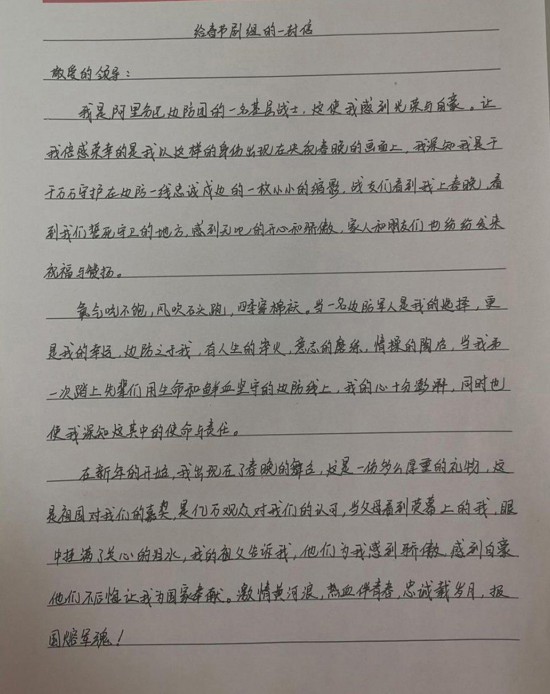 给春节剧组的一封信
敬爱的领导：
我是阿里军分区边防团的一名基层战士，这使我感到光荣与自豪。让
我倍感荣幸的是我以这样的身份出现在央视春晚的画面上，我深知我是千
千万万守护在边防一线忠诚戍边的一枚小小的缩影，战友们看到我上春晚，看
到我们誓死守卫的地方，感到无比的开心和骄傲，家人和朋友们也纷纷发来
祝福与赞扬。
氧气吃不饱，风吹石头跑，四季穿棉袄。当一名边防军人是我的选择，更
是我的幸运，边防之于我，有人生的淬火，意志的磨练，情操的陶冶，当我第
一次踏上先辈们用生命和鲜血坚守的边防线上，我的心十分澎湃，同时也
使我深知这其中的使命与责任。
在新年的开始，我出现在了春晚的舞台，这是一份多么厚重的礼物，这
是祖国对我们的嘉奖，是亿万观众对我们的认可，当父母看到荧幕上的我，眼
中挂满了关心的泪水，我的祖父告诉我，他们为我感到骄傲，感到自豪
他们不后悔让我为国家奉献。激情黄河浪，热血伴青春，忠诚载岁月，报
国熔军魂！